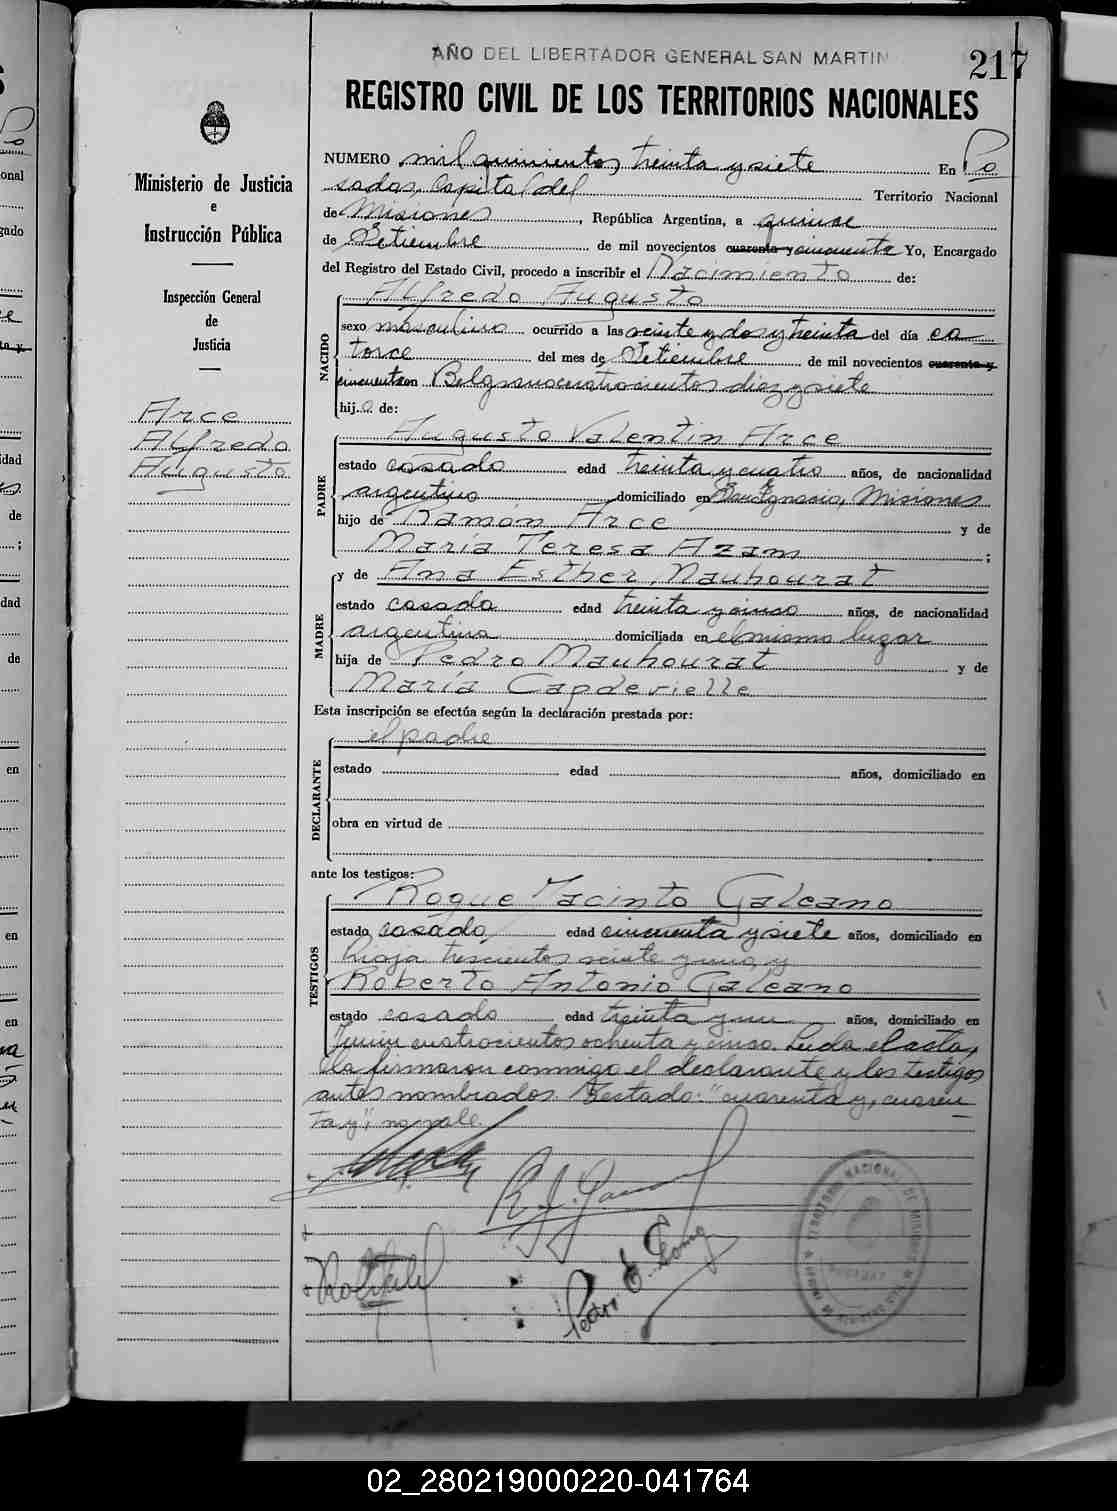 AÑO DEL LIBERTADOR GENERAL SAN MARTIN
217
REGISTRO CIVIL DE LOS TERRITORIOS NACIONALES
Ministerio de Justicia
e
Instrucción Pública
Inspección General
de
Justicia
Arce
Alfredo
Augusto
NUMERO mil quinientos treinta y siete En Po
sadas, Capital del Territorio Nacional
de Misiones, República Argentina, a quince
de Setiembre de mil novecientos cuarenta y cincuenta Yo, Encargado
del Registro del Estado Civil, procedo a inscribir el Nacimiento de:
NACIDO
Alfredo Augusto
sexo masculino ocurrido a las veinte y dos y treinta del día ca
torce del mes de Setiembre de mil novecientos cuarenta y
cincuenta en Belgrano cuatrocientos diez y siete
hijo de:
PADRE
Augusto Valentin Arce
estado casado edad treinta y cuatro años, de nacionalidad
argentino domiciliado en San Ignacio, Misiones
hijo de Ramón Arce y de
María Teresa Azam ;
MADRE
y de Ana Esther Mauhourat
estado casada edad treinta y cinco años, de nacionalidad
argentina domiciliada en el mismo lugar
hija de Pedro Mauhourat y de
María Capdevielle
Esta inscripción se efectúa según la declaración prestada por:
DECLARANTE
el padre
estado edad años, domiciliado en
obra en virtud de
ante los testigos:
TESTIGOS
Roque Jacinto Galeano
estado casado, edad cincuenta y siete años, domiciliado en
Rioja trescientos veinte y uno, y
Roberto Antonio Galeano
estado casado edad treinta y un años, domiciliado en
Junin cuatrocientos ochenta y cinco. Leida el acta,
la firmaron conmigo el declarante y los testigos
antes nombrados. Testado: "cuarenta y, cuaren
ta y"; no vale.
R. J. Galeano
Pedro
TERRITORIO NACIONAL DE MISIONES
02_280219000220-041764